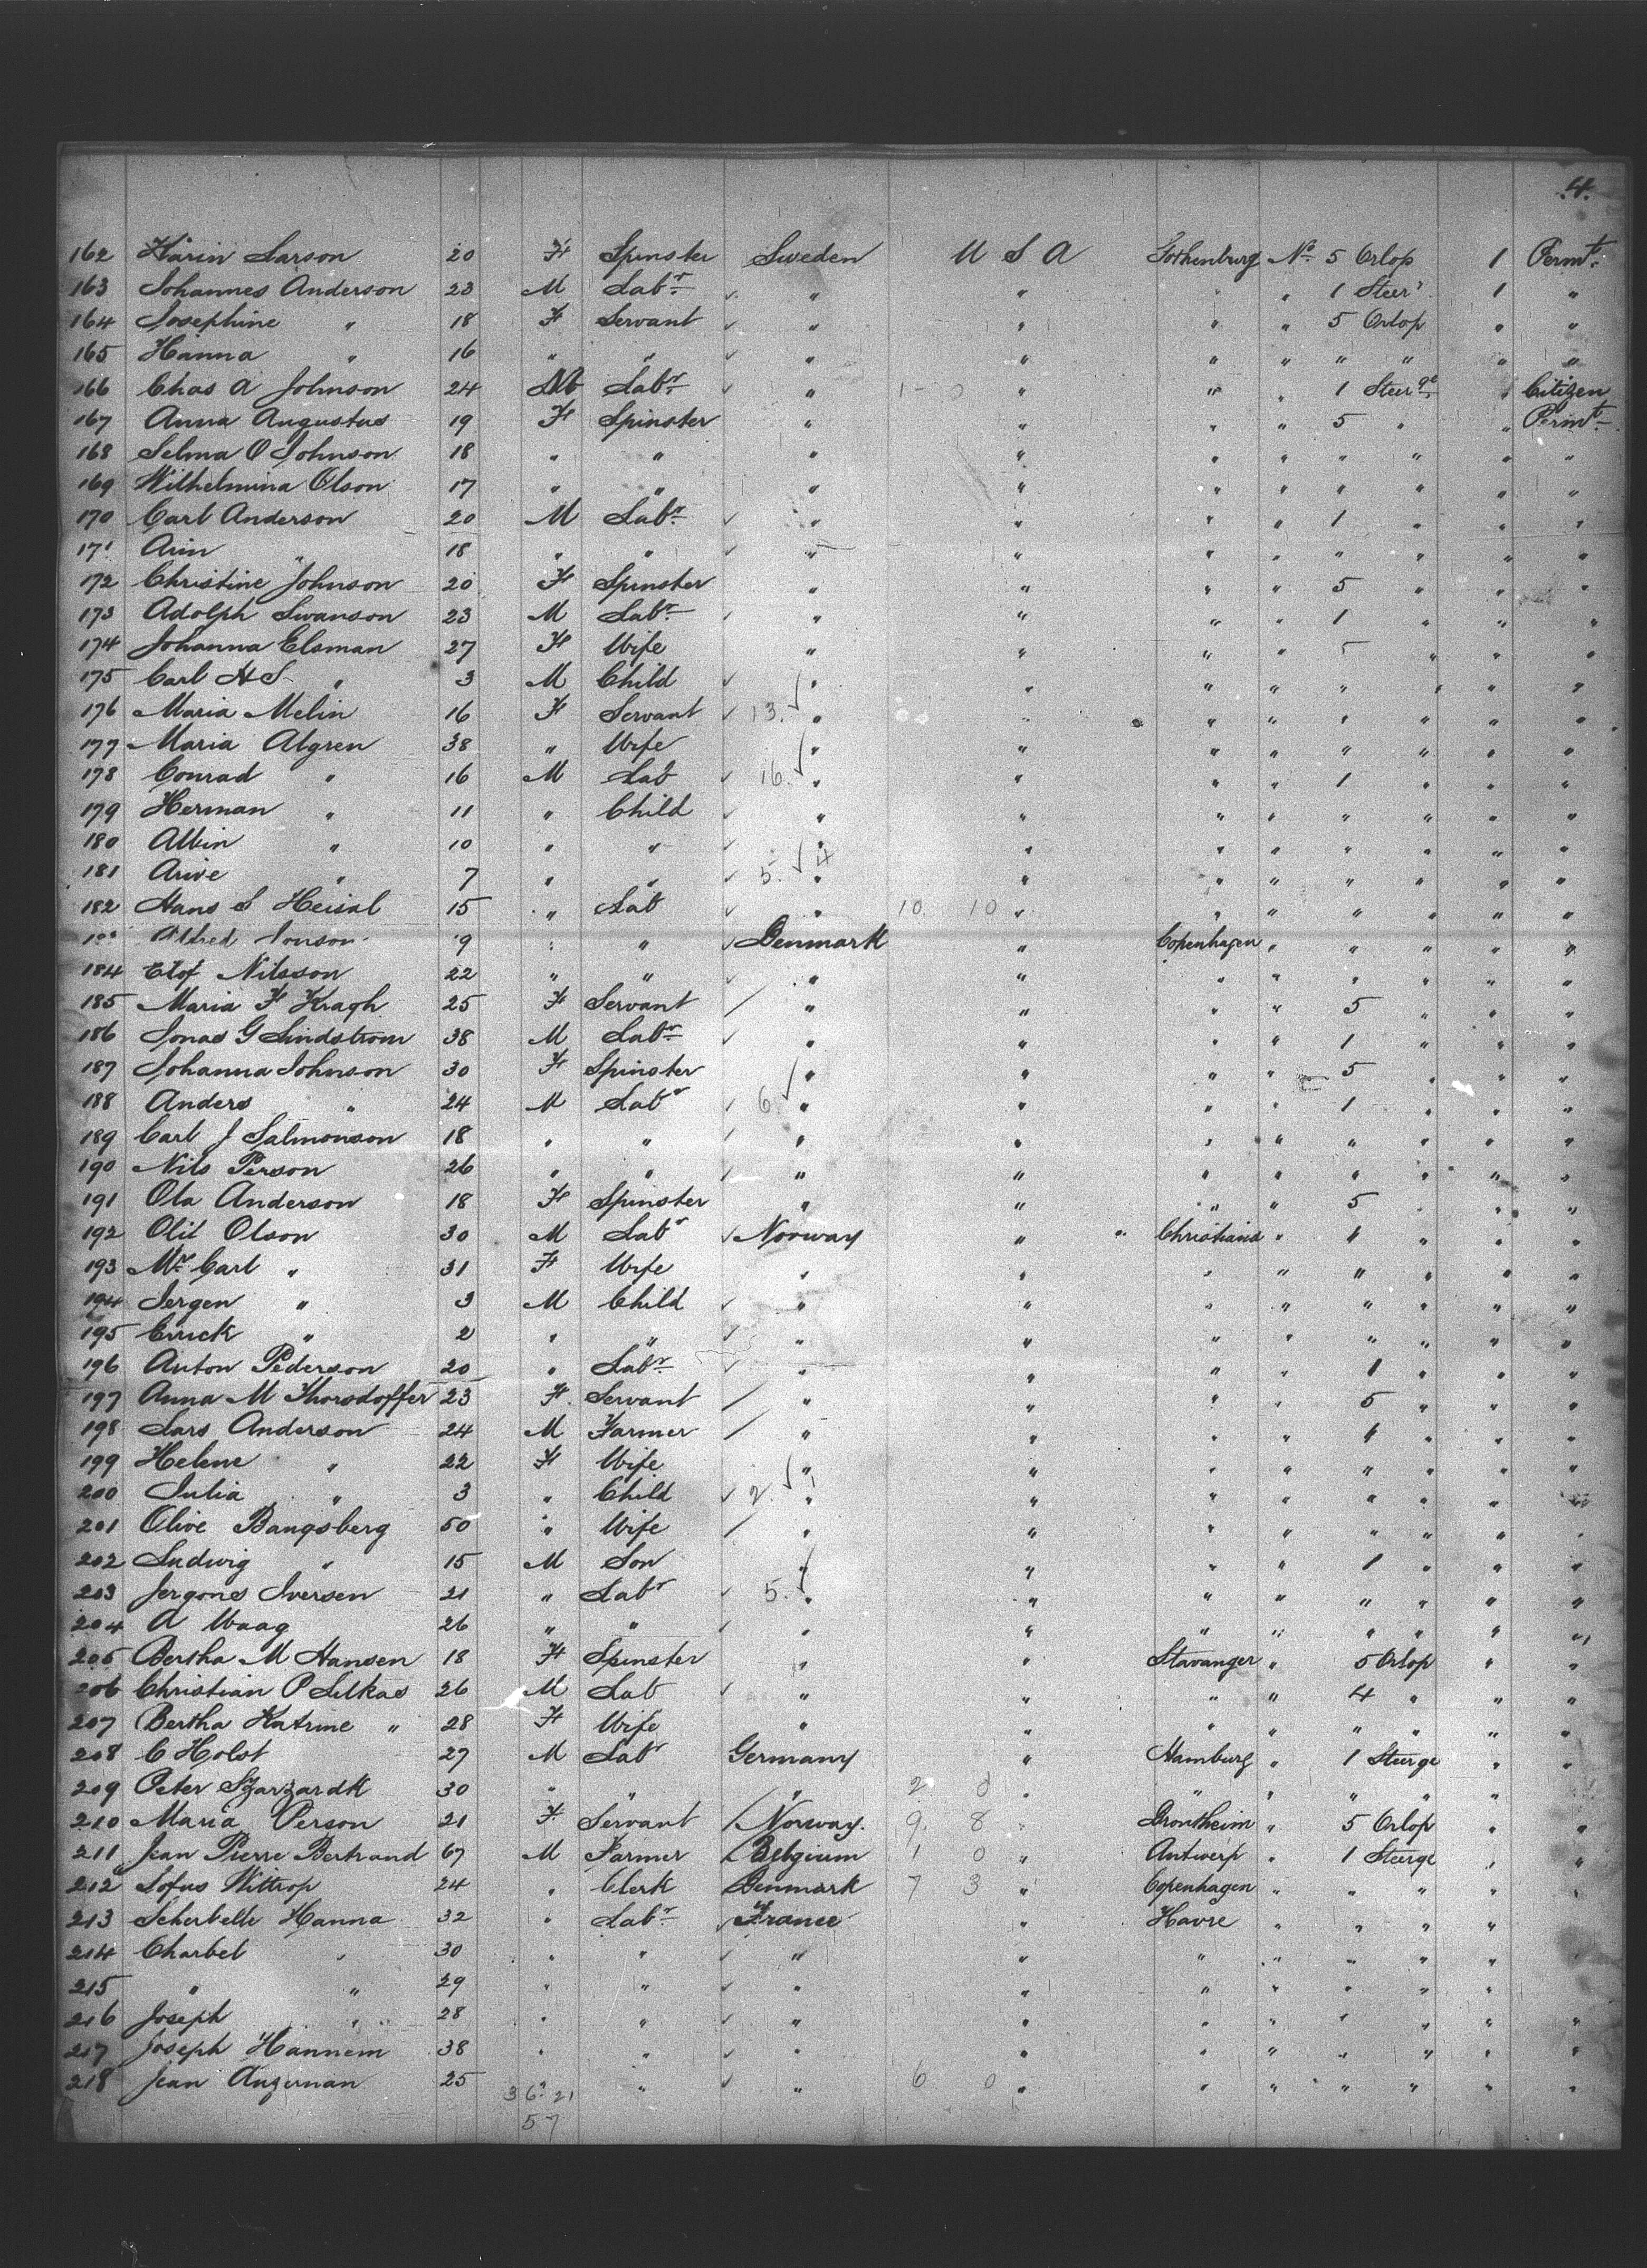 4.
162 Karin Larson 20 F Spinster Sweden U S A Gothenburg No. 5 Orlop 1 Permt.
163 Johannes Anderson 23 M Labr. " " " " 1 Steer 1 "
164 Josephine " 18 F Servant " " " " 5 Orlop " "
165 Hanna " 16 " " " " " " " " " "
166 Chas A Johnson 24 M Labr. " 1 - 0 " " " 1 Steerge " Citizen
167 Anna Augustus 19 F Spinster " " " " 5 " " Permt.
168 Selma O Johnson 18 " " " " " " " " " "
169 Wilhelmina Olson 17 " " " " " " " " " "
170 Carl Anderson 20 M Labr. " " " " 1 " " "
171 Arin " 18 " " " " " " " " " "
172 Christine Johnson 20 F Spinster " " " " 5 " " "
173 Adolph Swanson 23 M Labr. " " " " 1 " " "
174 Johanna Elsman 27 F Wife " " " " 5 " " "
175 Carl H S " 3 M Child " " " " " " " "
176 Maria Melin 16 F Servant 13. " " " " " " " "
177 Maria Algren 38 " Wife " " " " " " " "
178 Conrad " 16 M Lab 16. " " " " 1 " " "
179 Herman " 11 " Child " " " " " " " "
180 Albin " 10 " " " " " " " " " "
181 Arive " 7 " " 5. 4 " " " " " " " "
182 Hans S Heisal 15 " Lab " 10. 10 " " " " " " "
Alfred Jonson 9 " " Denmark " Copenhagen " " " " "
184 Elof Nilsson 22 " " " " " " " " " "
185 Maria F Kragh 25 F Servant " " " " 5 " " "
186 Jonas G Lindstrom 38 M Labr. " " " " 1 " " "
187 Johanna Johnson 30 F Spinster " " " " 5 " " "
188 Anders " 24 M Labr 6. " " " " 1 " " "
189 Carl J Salmonson 18 " " " " " " " " " "
190 Nils Person 26 " " " " " " " " " "
191 Ola Anderson 18 F Spinster " " " " 5 " " "
192 Olit Olson 30 M Labr Norway " Christiania " 4 " " "
193 Mr. Carl " 31 F Wife " " " " " " " "
194 Jergen " 3 M Child " " " " " " " "
195 Erick " 2 " " " " " " " " " "
196 Anton Pederson 20 " Labr. " " " " 1 " " "
197 Anna M Thorsdoffer 23 F Servant " " " " 5 " " "
198 Lars Anderson 24 M Farmer " " " " 4 " " "
199 Helene " 22 F Wife " " " " " " " "
200 Julia " 3 " Child 2. " " " " " " " "
201 Olive Bangsberg 50 " Wife " " " " " " " "
202 Ludwig " 15 M Son " " " " 1 " " "
203 Jergones Iversen 21 " Labr 5. " " " " " " " "
204 A Waag 26 " " " " " " " " " "
205 Bertha M Hansen 18 F Spinster " " Stavanger " 5 Orlop " "
206 Christian P Silkas 26 M Lab " " " " 4 " " "
207 Bertha Katrine " 28 F Wife " " " " " " " "
208 C Holst 27 M Labr Germany " Hamburg " 1 Steerge " "
209 Peter Szarzardk 30 " " " 2 0 " " " " " "
210 Maria Person 21 F Servant Norway. 9. 8 " Drontheim " 5 Orlop " "
211 Jean Pierre Bertrand 67 M Farmer Belgium 1 0 " Antwerp " 1 Steerge " "
212 Sofus Wittrop 24 " Clerk Denmark 7 3 " Copenhagen " " " " "
213 Scherbelle Hanna 32 " Labr. France " Havre " " " "
214 Charbel " 30 " " " " " " " " "
215 " " 29 " " " " " " " " "
216 Joseph " 28 " " " " " " " " " "
217 Joseph Hannem 38 " " " " " " " " " "
218 Jean Angernan 25 " " 6 0 " " " " " " "
36 21
57